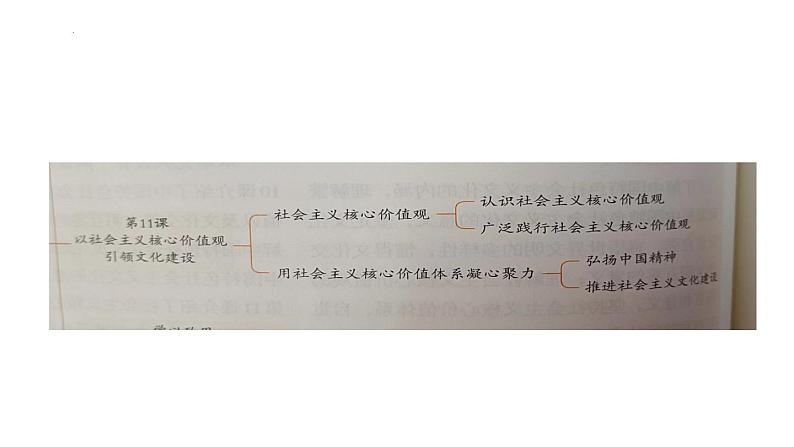 第11课
以社会主义核心价值观
引领文化建设
社会主义核心价值观
认识社会主义核心价值观
广泛践行社会主义核心价值观
用社会主义核心价值体系凝心聚力
弘扬中国精神
推进社会主义文化建设